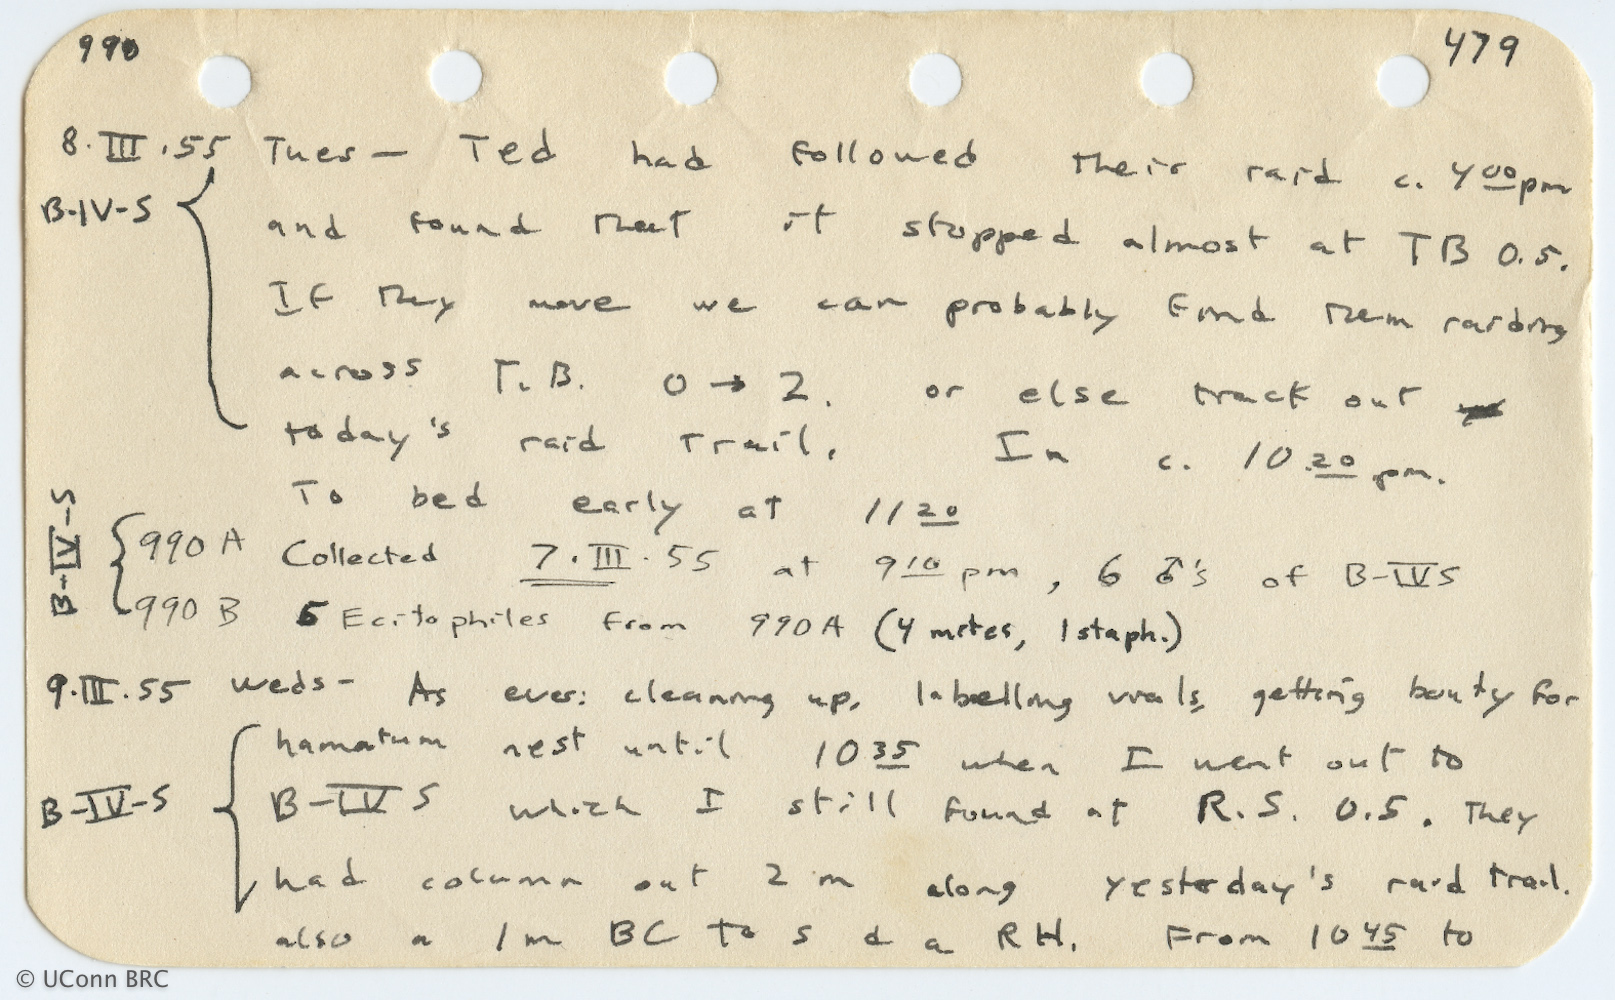 990 479
8.III.55 Tues — Ted had followed their raid c. 4 00 pm
B-IV-S and found that it stopped almost at TB 0.5.
If they move we can probably find them raiding
across T.B. 0 → 2. or else track out
today's raid trail. In c. 10.20 pm.
To bed early at 11 20
B-IV-S
990 A Collected 7.III.55 at 9 10 pm, 6 ♂'s of B-IV S
990 B 5 Ecitophiles from 990A (4 mites, 1 staph.)
9.III.55 Weds- As ever: cleaning up, labelling vials, getting booty for
hamatum nest until 10 35 when I went out to
B-IV-S B-IV S which I still found at R.S. 0.5. They
had column out 2 m along yesterday's raid trail.
also a 1m BC to s d a RH. From 10 45 to
© UConn BRC